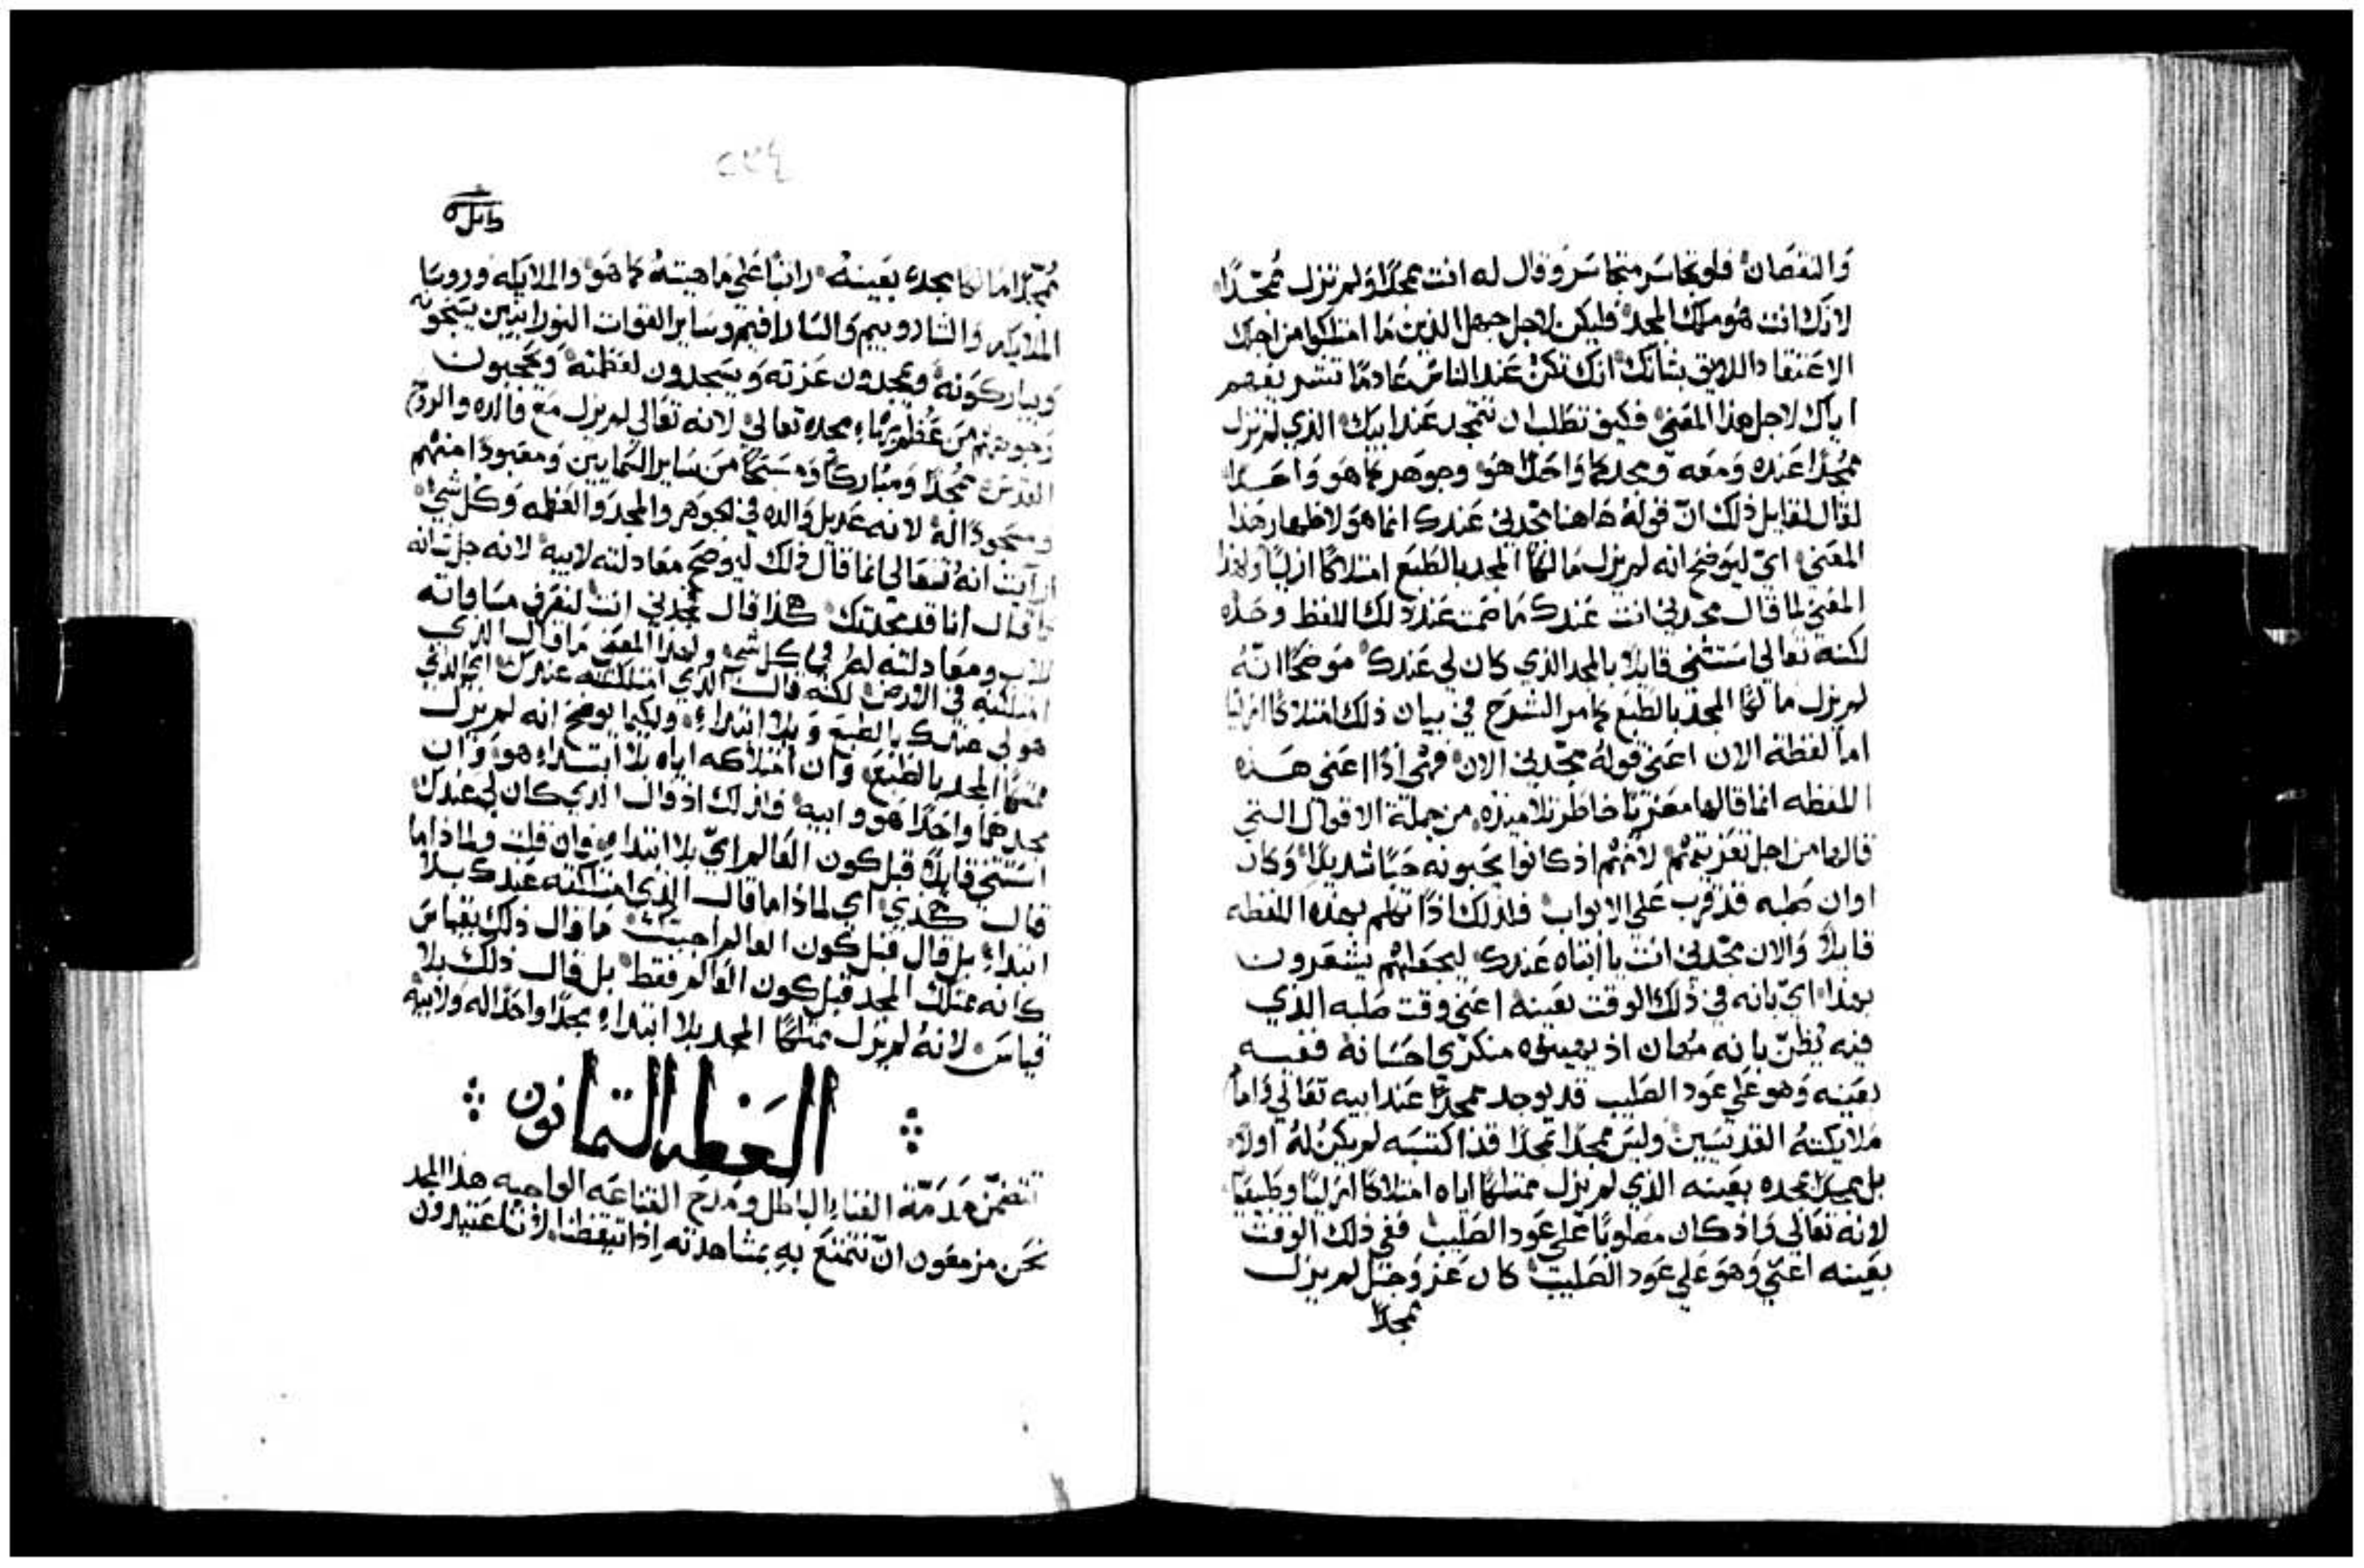 والنقصان فلو تجاسر متجاسر وقال له انت ممجدًا ولم تزل ممجدًا
لانك انت هو ملك المجد فليكن لاجل جهل الذين ما امتلكوا من اجلك
الاعتقاد اللايق بشانك انك تكن عند الناس عادمًا تشريفهم
اياك لاجل هذا المعني فكيف تطلب ان تتمجد عند ابيك الذي لم تزل
ممجدًا عنده ومعه ومجدكما واحدًا هو وجوهركما هو واحدًا
لقال لمقابل ذلك انّ قولهُ هاهنا مجدني عندك انما هو لاظهار هذا
المعني ايّ ليوضح انه لم يزل مالكًا المجد بالطبع امتلاكًا ازليًا ولهذا
المعني لما قال مجدني انت عندك ما صمت عند ذلك اللفظ وحده
لكنه تعالي استثني قايلاً بالمجد الذي كان لي عندك موضحًا انّهُ
لم يزل مالكًا المجد بالطبع كما مر الشرح في بيان ذلك امتلاكًا ازليًا
اما لفظة الان اعني قولهُ مجّدني الان فهي اذًا اعني هذه
اللفظه انما قالها معزيًا خاطر تلاميذه من جملة الاقوال التي
قالها من اجل تعزيتهم لانهم اذ كانوا يحبونه حبًا شديدًا وكان
اوان صلبه قد قرب علي الابواب فلذلك اذًا تكلم بهذه اللفظه
قايلاً والان مجّدني انت يا ابتاه عندك ليجعلهم يشعرون
بهذا ايّ بانه في ذلك الوقت بعينه اعني وقت صلبه الذي
فيه يُظنّ بانه مُهان اذ يهينوه منكرّي احسانه ففيه
بعينه وهو علي عود الصليب قد يوجد ممجدًا عند ابيه تعالي وامام
ملايكتهُ القديسين وليس ممجدًا مجدًا قد اكتسبه لم يكن لهُ اولاً
بل ممجدًا بمجده بعينه الذي لم يزل ممتلكًا اياه امتلاكًا ازليًا وطبيعيًا
لانه تعالي واذ كان مصلوبًا علي عود الصليب ففي ذلك الوقت
بعينه اعني وهو علي عود الصليب كان عز وجل لم يزل
ممجدًا
ممجّدًا مالكًا مجده بعينه راتبًا علي ماهيتهُ كما هو والملايكه وروسا
الملايكه والشاروبيم والسارافيم وساير القوات النورانيين يسبحونه
ويباركونه ويمجدون عزته ويسجدون لعظمته ويحجبون
وجوههم من عُظم بهاء مجده تعالي لانه تعالي لم يزل مع والده والروح
القدس ممجدًا ومباركًا ومسبحًا من ساير السمايين ومعبودًا منهم
ومسجودًا لهُ لانه عديل والده في الجوهر والمجد والعظمه وكل شي
ارأيت انهُ تعالي انما قال ذلك ليوضح معادلته لابيه لانه جل شانه
كما قال انا قد مجدتك هكذا قال مجّدني انت لنعرف مساواته
للاب ومعادلته لهُ في كل شي ولهذا المعني ما قال الذي
امتلكته في الارض لكنه قال الذي امتلكته عندك ايّ الذي
هو لي عندك بالطبع وبلا ابتداء ولكيما يوضح انه لم يزل
ممتلكًا المجد بالطبع وان امتلاكه اياه بلا ابتداء هو وان
مجدهما واحدًا هو وابيه فلذلك اذ قال الذي كان لي عندك
استثني قايلاً قبل كون العالم ايّ بلا ابتداء فان قلت ولماذا ما
قال هكذي ايّ لماذا ما قال الذي امتلكته عندك بلا
ابتداء بل قال قبل كون العالم اجبتك ما قال ذلك بقياس
كانه ممتلك المجد قبل كون العالم فقط بل قال ذلك بلا
قياس لانهُ لم يزل ممتلكًا المجد بلا ابتداء مجدًا واحدًا له ولابيه
العظه الثمانون
تتضمن مذمّة الغناء الباطل ومدح القناعه الواجبه هذا المجد
نحن مزمعون انّ نتمتع به بمشاهدته اذا تيقظنا لاننا عتيدون